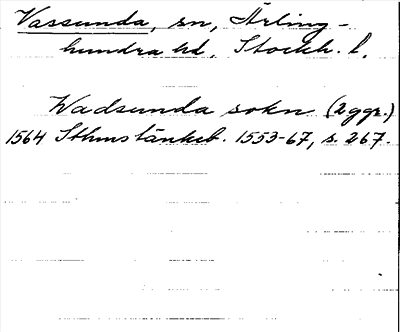 Vassunda, sn, Ärling-
hundra hd, Stockh. l.
Wadsunda sokn (2 ggr.)
1564 Sthmstänkeb. 1553-67, s. 267.